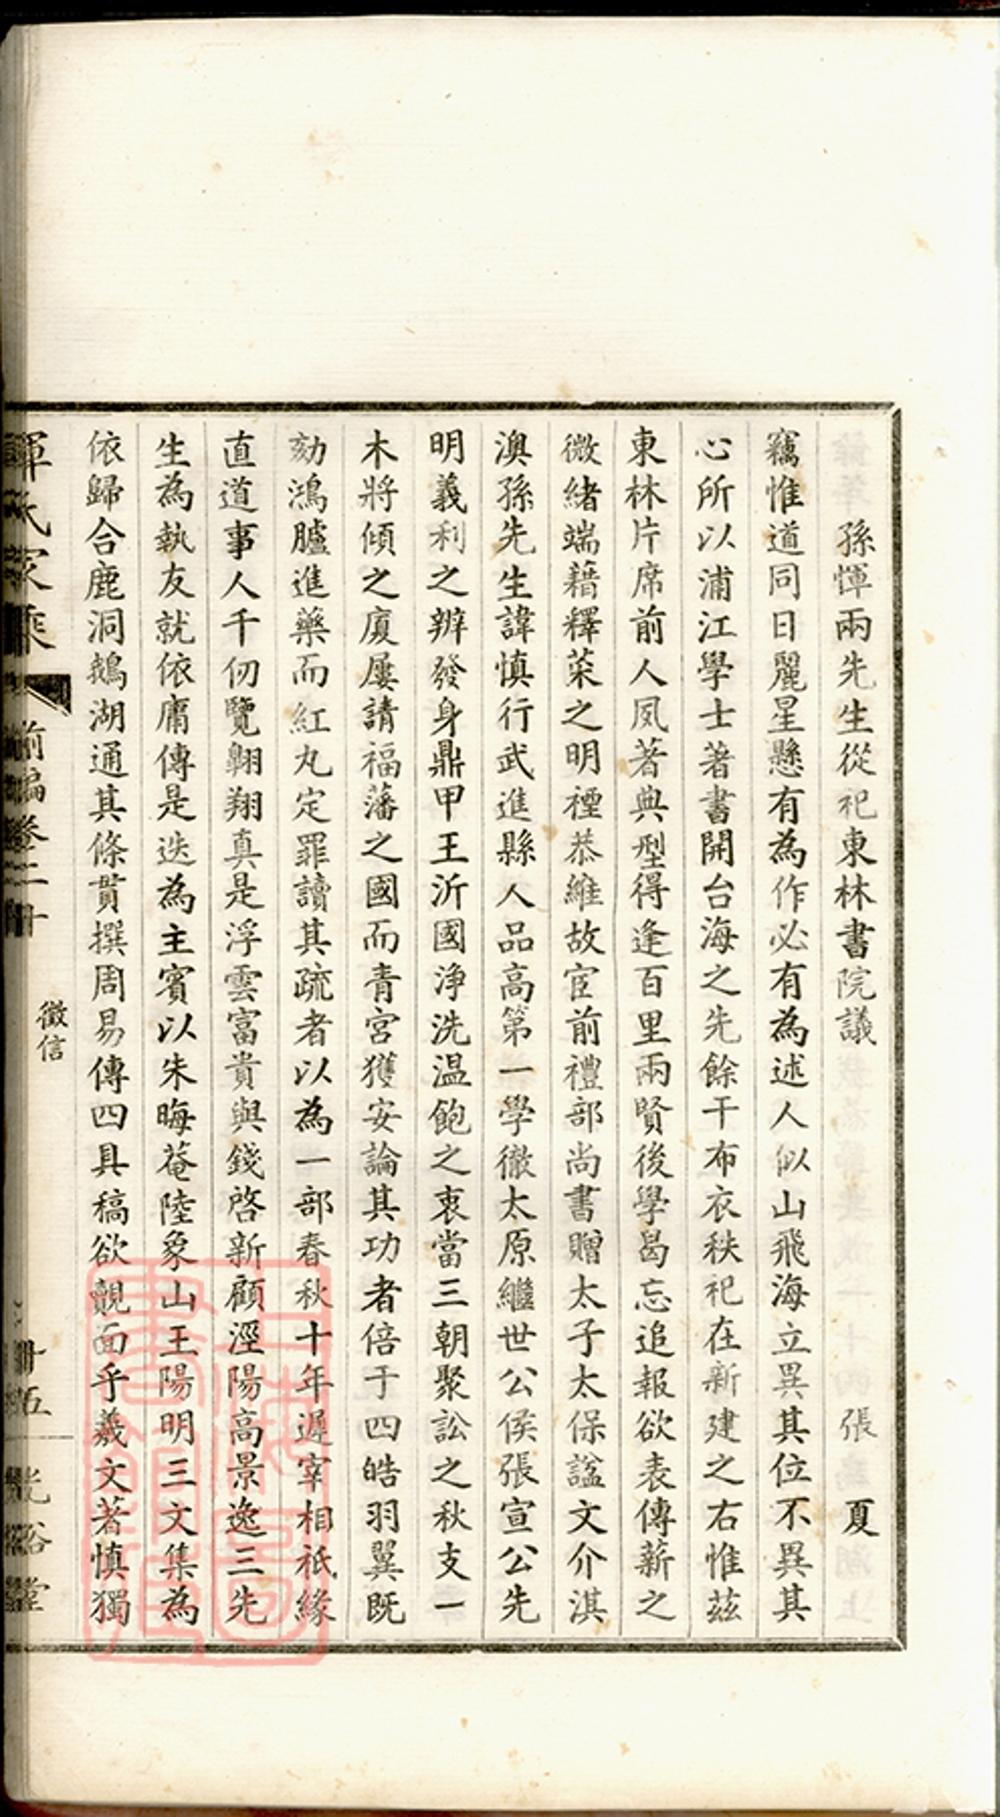 孫惲兩先生從祀東林書院議　張夏
竊惟道同日麗星懸有為作必有為述人似山飛海立異其位不異其
心所以浦江學士著書開台海之先餘干布衣秩祀在新建之右惟茲
東林片席前人夙著典型得逢百里兩賢後學曷忘追報欲表傳薪之
微緒端藉釋菜之明禋恭維故宦前禮部尚書贈太子太保諡文介淇
澳孫先生諱慎行武進縣人品高第一學徹太原繼世公侯張宣公先
明義利之辨發身鼎甲王沂國净洗温飽之衷當三朝聚訟之秋支一
木將傾之廈屢請福藩之國而青宮獲安論其功者倍于四皓羽翼既
劾鴻臚進藥而紅丸定罪讀其疏者以為一部春秋十年遲宰相祇緣
直道事人千仞覽翱翔真是浮雲富貴與錢啓新顧涇陽高景逸三先
生為執友就依庸傳是迭為主賓以朱晦菴陸象山王陽明三文集為
依歸合鹿洞鵝湖通其條貫撰周易傳四具稿欲覿面乎羲文著慎獨
惲氏家乘
前編卷二十
徵信
十五
光裕堂